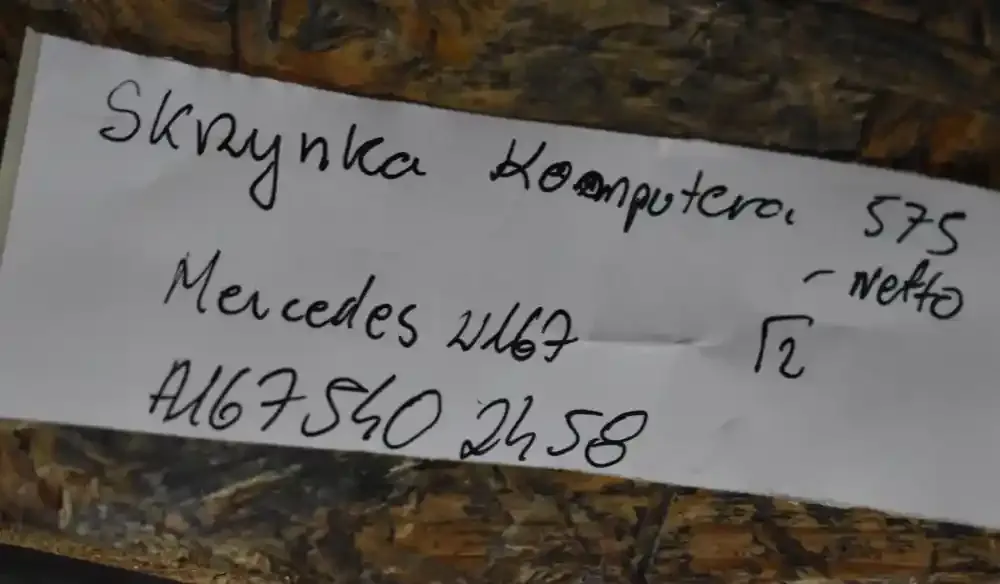 Skrzynka Komputera 575
- Netto
Mercedes W167 √2
A167 540 2458